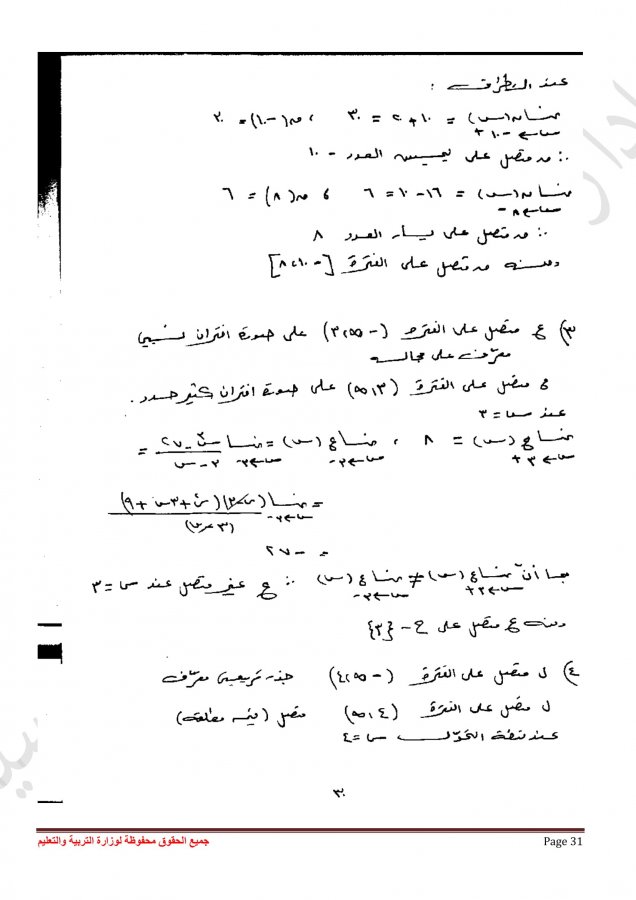 عند الأطراف :
نهــا ق(س) = ١٠ + ٢٠ = ٣٠ ، ق(-١٠) = ٣٠
س←-١٠+
∴ ق متصل على يمين العدد -١٠
نهــا ق(س) = ١٦ - ١٠ = ٦ ، ق(٨) = ٦
س←٨-
∴ ق متصل على يسار العدد ٨
ومنه ق متصل على الفترة [-١٠،٨]
٣) ع متصل على الفترة (-∞،٣) على صورة اقتران نسبي
معرّف على مجاله
ع متصل على الفترة (٣،∞) على صورة اقتران كثير حدود .
عند س = ٣
نهــا ع(س) = ٨ ، نهــا ع(س) = نهــا س³ - ٢٧ / ٣ - س =
س←٣+ س←٣- س←٣-
= نهــا (س-٣)(س²+٣س+٩) / (٣-س)
س←٣-
= -٢٧
بما أنّ نهــا ع(س) ≠ نهــا ع(س) ∴ ع غير متصل عند س = ٣
س←٣+ س←٣-
ومنه ع متصل على ح - {٣}
٤) ل متصل على الفترة (-∞،٤) جذر تربيعي معرّف
ل متصل على الفترة (٤،∞) متصل (قيمة مطلقة)
عند نقطة التحوّل س = ٤
٣٠
جميع الحقوق محفوظة لوزارة التربية والتعليم
Page 31